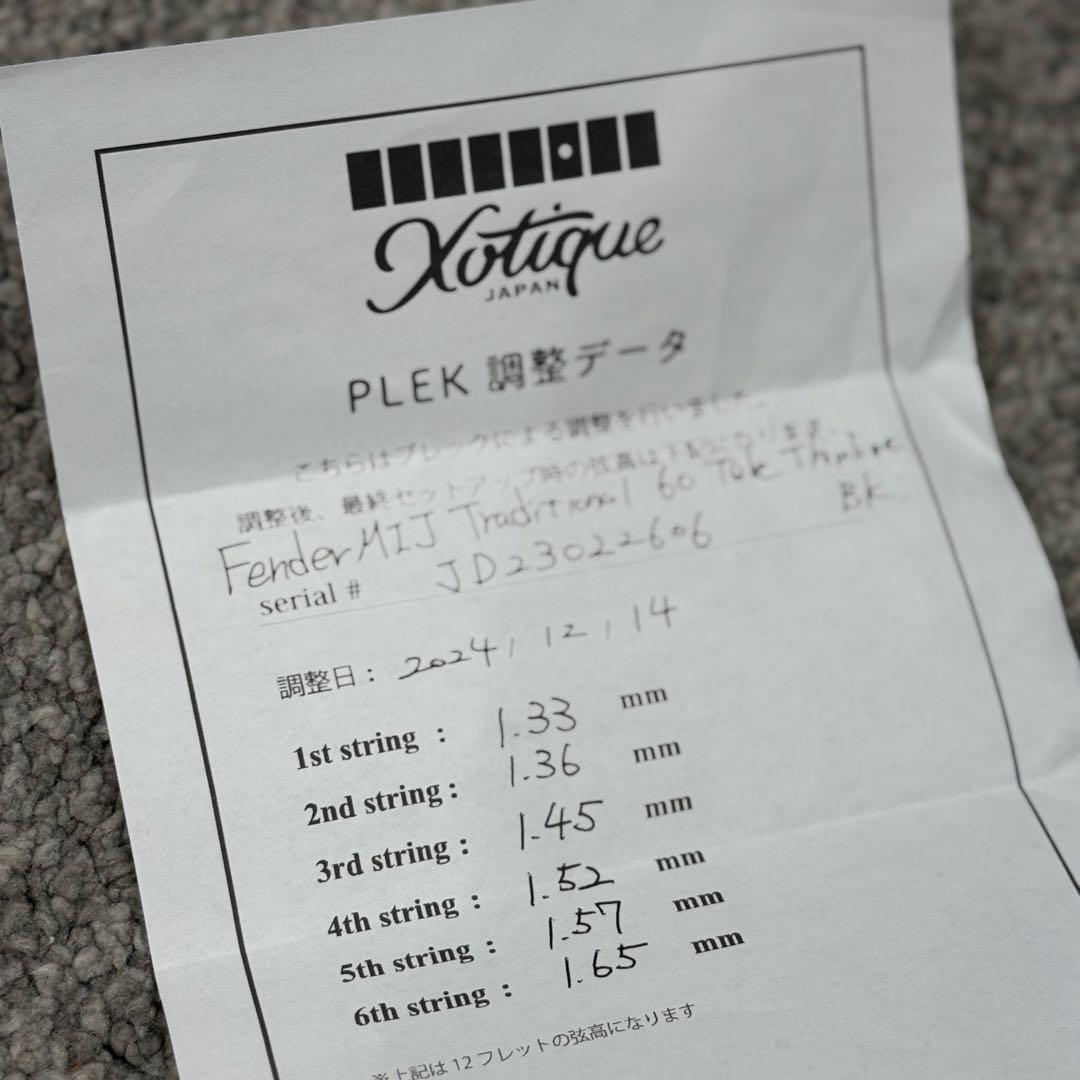 Xotique
JAPAN
PLEK 調整データ
こちらはプレックによる調整を行いました。
調整後、最終セットアップ時の弦高は下記になります。
Fender MIJ Traditional 60 Tele Thinline
BK
serial # JD23022606
調整日： 2024 / 12 / 14
1st string : 1.33 mm
2nd string : 1.36 mm
3rd string : 1.45 mm
4th string : 1.52 mm
5th string : 1.57 mm
6th string : 1.65 mm
※上記は12フレットの弦高になります